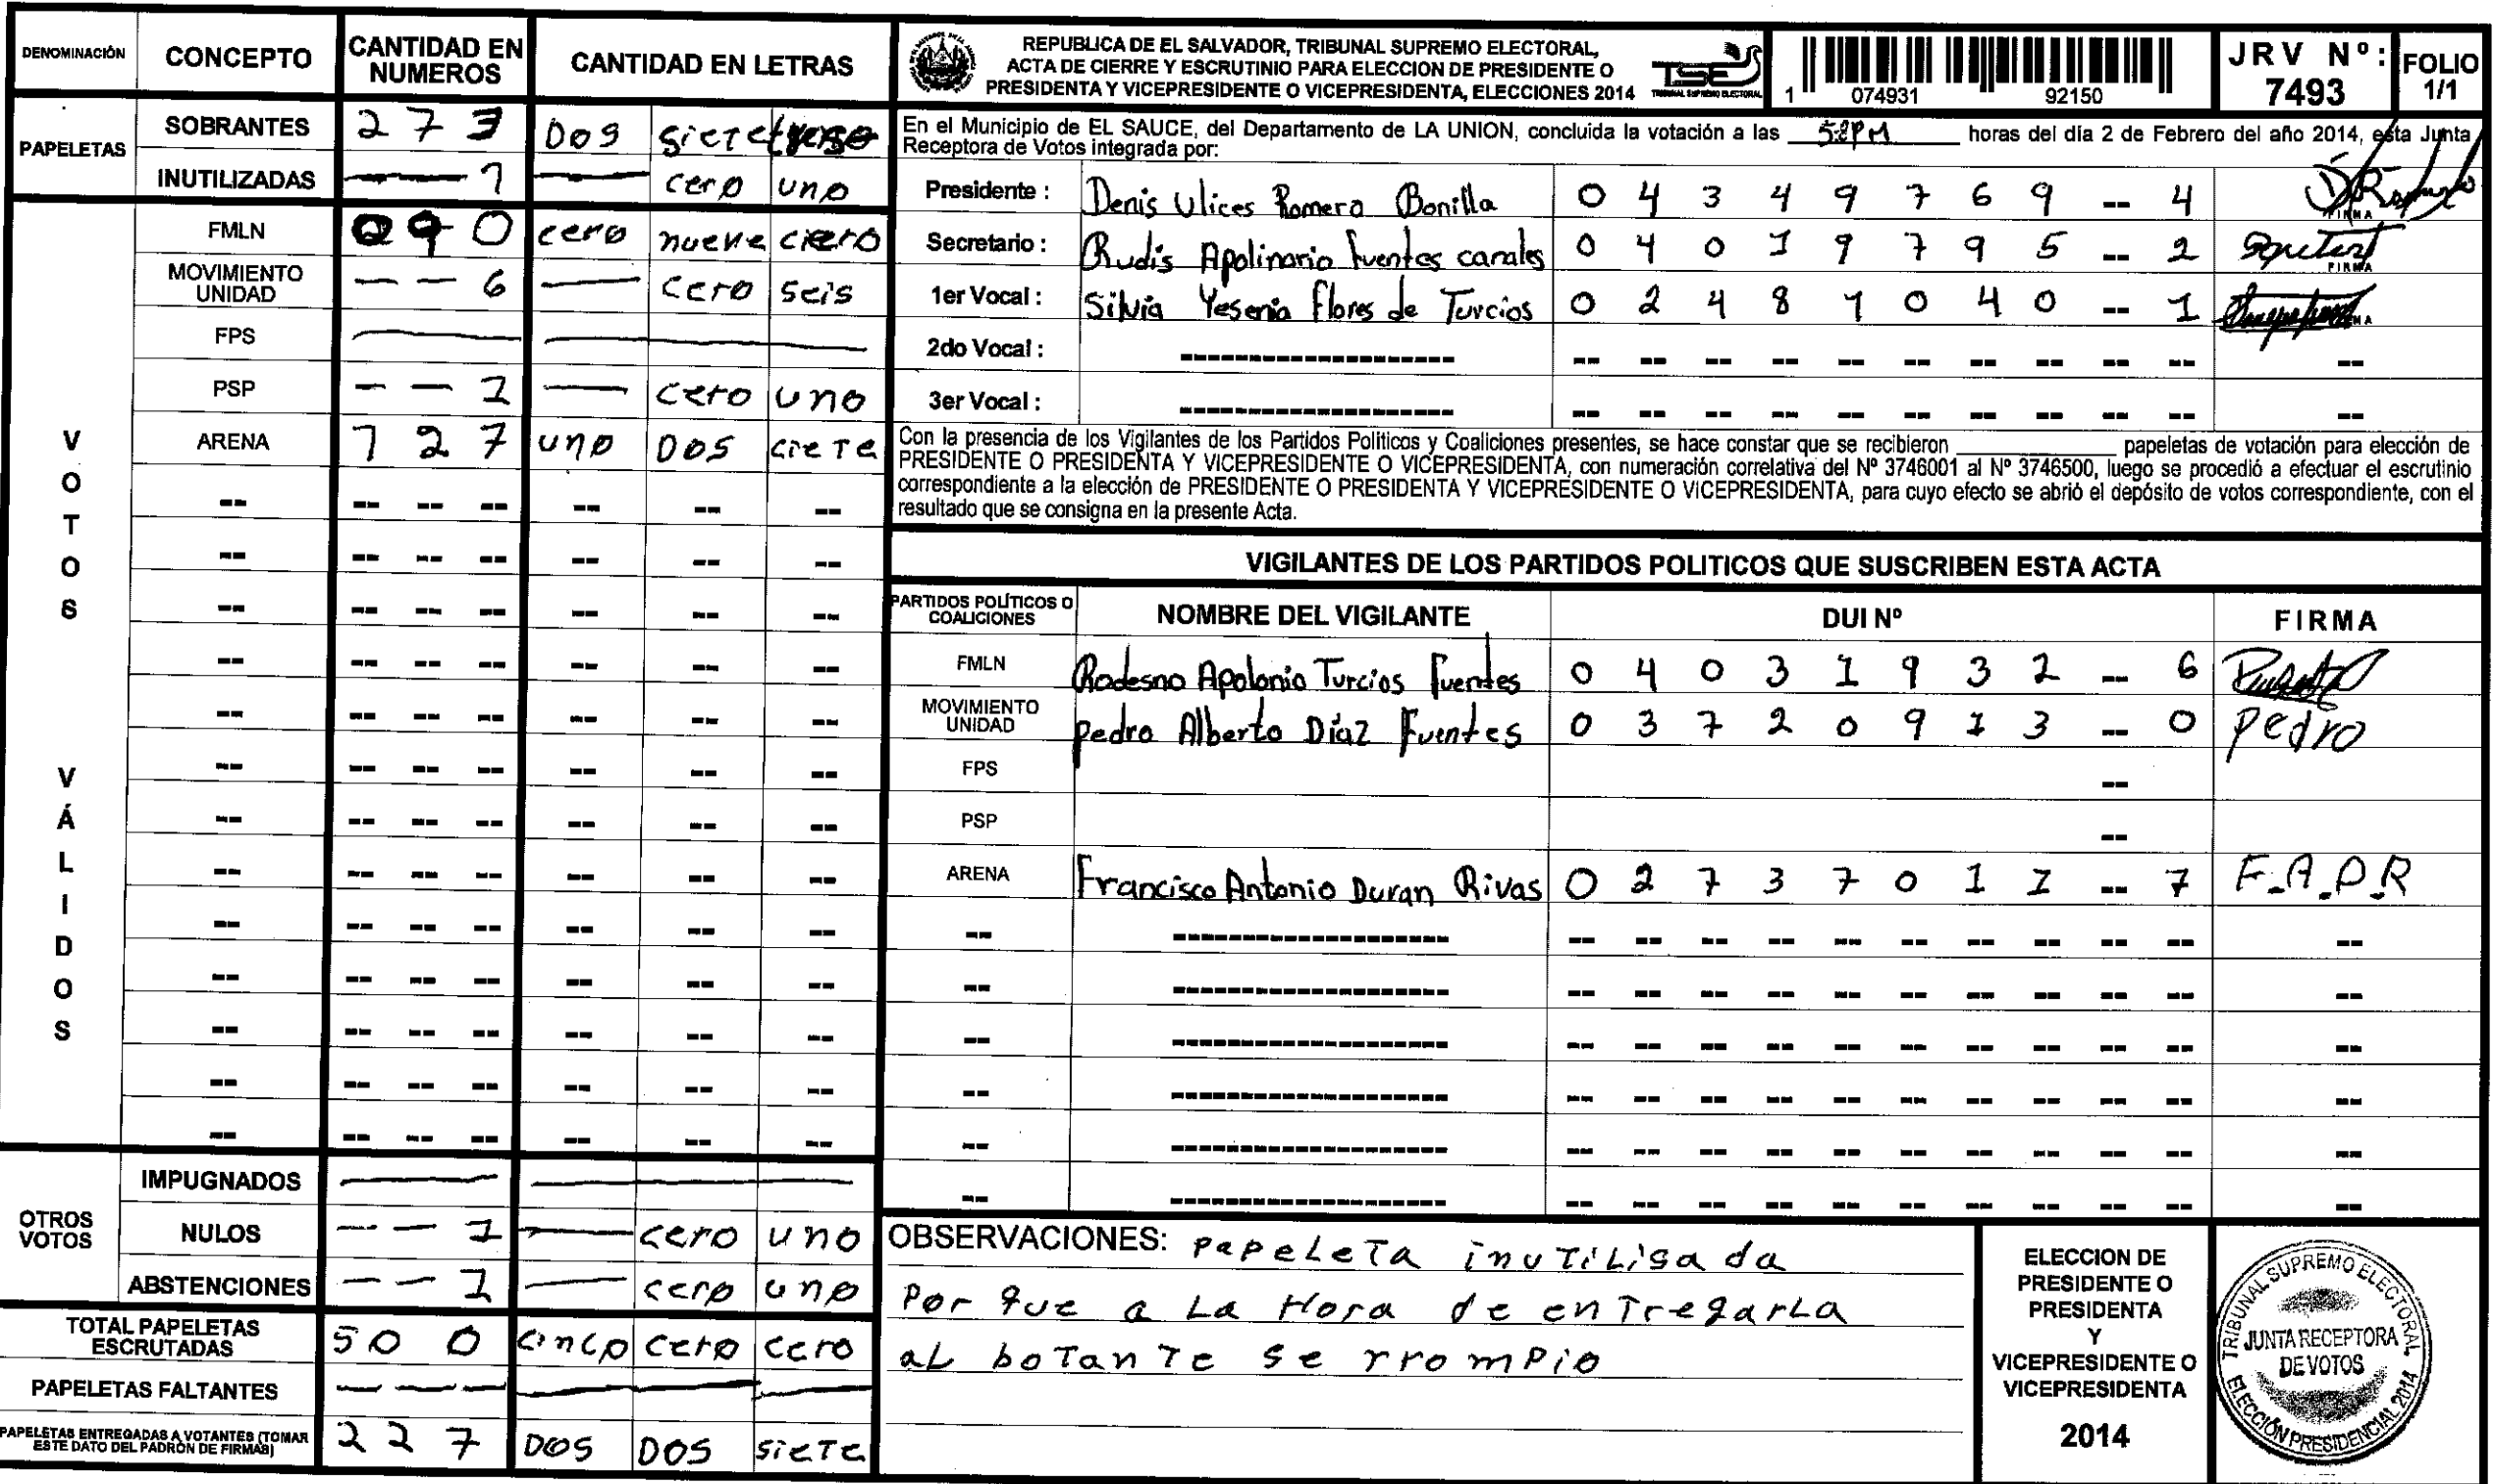 DENOMINACIÓN CONCEPTO CANTIDAD EN NUMEROS CANTIDAD EN LETRAS
PAPELETAS
SOBRANTES 2 7 3 DOS siete
INUTILIZADAS — 1 — cero uno
VOTOS VÁLIDOS
FMLN 0 9 0 cero nueve ciero
MOVIMIENTO UNIDAD — — 6 — cero seis
FPS — —
PSP — — 1 — cero uno
ARENA 1 2 7 uno DOS ciete
OTROS VOTOS
IMPUGNADOS — —
NULOS — — 1 — cero uno
ABSTENCIONES — — 1 — cero uno
TOTAL PAPELETAS ESCRUTADAS 5 0 0 cinco cero cero
PAPELETAS FALTANTES — — — — — —
PAPELETAS ENTREGADAS A VOTANTES (TOMAR ESTE DATO DEL PADRÓN DE FIRMAS) 2 2 7 DOS DOS siete
REPUBLICA DE EL SALVADOR, TRIBUNAL SUPREMO ELECTORAL,
ACTA DE CIERRE Y ESCRUTINIO PARA ELECCION DE PRESIDENTE O
PRESIDENTA Y VICEPRESIDENTE O VICEPRESIDENTA, ELECCIONES 2014
TSE
TRIBUNAL SUPREMO ELECTORAL
1 074931 92150
JRV Nº: 7493
FOLIO 1/1
En el Municipio de EL SAUCE, del Departamento de LA UNION, concluida la votación a las 5:8PM horas del día 2 de Febrero del año 2014, esta Junta
Receptora de Votos integrada por:
Presidente : Denis Ulices Romero Bonilla 0 4 3 4 9 7 6 9 -- 4 FIRMA
Secretario : Rudis Apolinario Fuentes canales 0 4 0 1 9 7 9 5 -- 2 FIRMA
1er Vocal : Silvia Yesenia Flores de Turcios 0 2 4 8 1 0 4 0 -- 1
2do Vocal :
3er Vocal :
Con la presencia de los Vigilantes de los Partidos Politicos y Coaliciones presentes, se hace constar que se recibieron ______ papeletas de votación para elección de
PRESIDENTE O PRESIDENTA Y VICEPRESIDENTE O VICEPRESIDENTA, con numeración correlativa del Nº 3746001 al Nº 3746500, luego se procedió a efectuar el escrutinio
correspondiente a la elección de PRESIDENTE O PRESIDENTA Y VICEPRESIDENTE O VICEPRESIDENTA, para cuyo efecto se abrió el depósito de votos correspondiente, con el
resultado que se consigna en la presente Acta.
VIGILANTES DE LOS PARTIDOS POLITICOS QUE SUSCRIBEN ESTA ACTA
PARTIDOS POLÍTICOS O COALICIONES NOMBRE DEL VIGILANTE DUI Nº FIRMA
FMLN Rodesno Apolonio Turcios Fuentes 0 4 0 3 1 9 3 2 -- 6
MOVIMIENTO UNIDAD pedro Alberto Díaz Fuentes 0 3 7 2 0 9 1 3 -- 0 pedro
FPS --
PSP --
ARENA Francisco Antonio Duran Rivas 0 2 7 3 7 0 1 1 -- 7 F.A.D.R
OBSERVACIONES: papeleta inutilisada
Por que a La Hora de entregarla
al botante se rrompio
ELECCION DE
PRESIDENTE O
PRESIDENTA
Y
VICEPRESIDENTE O
VICEPRESIDENTA
2014
TRIBUNAL SUPREMO ELECTORAL
JUNTA RECEPTORA
DE VOTOS
ELECCIÓN PRESIDENCIAL 2014